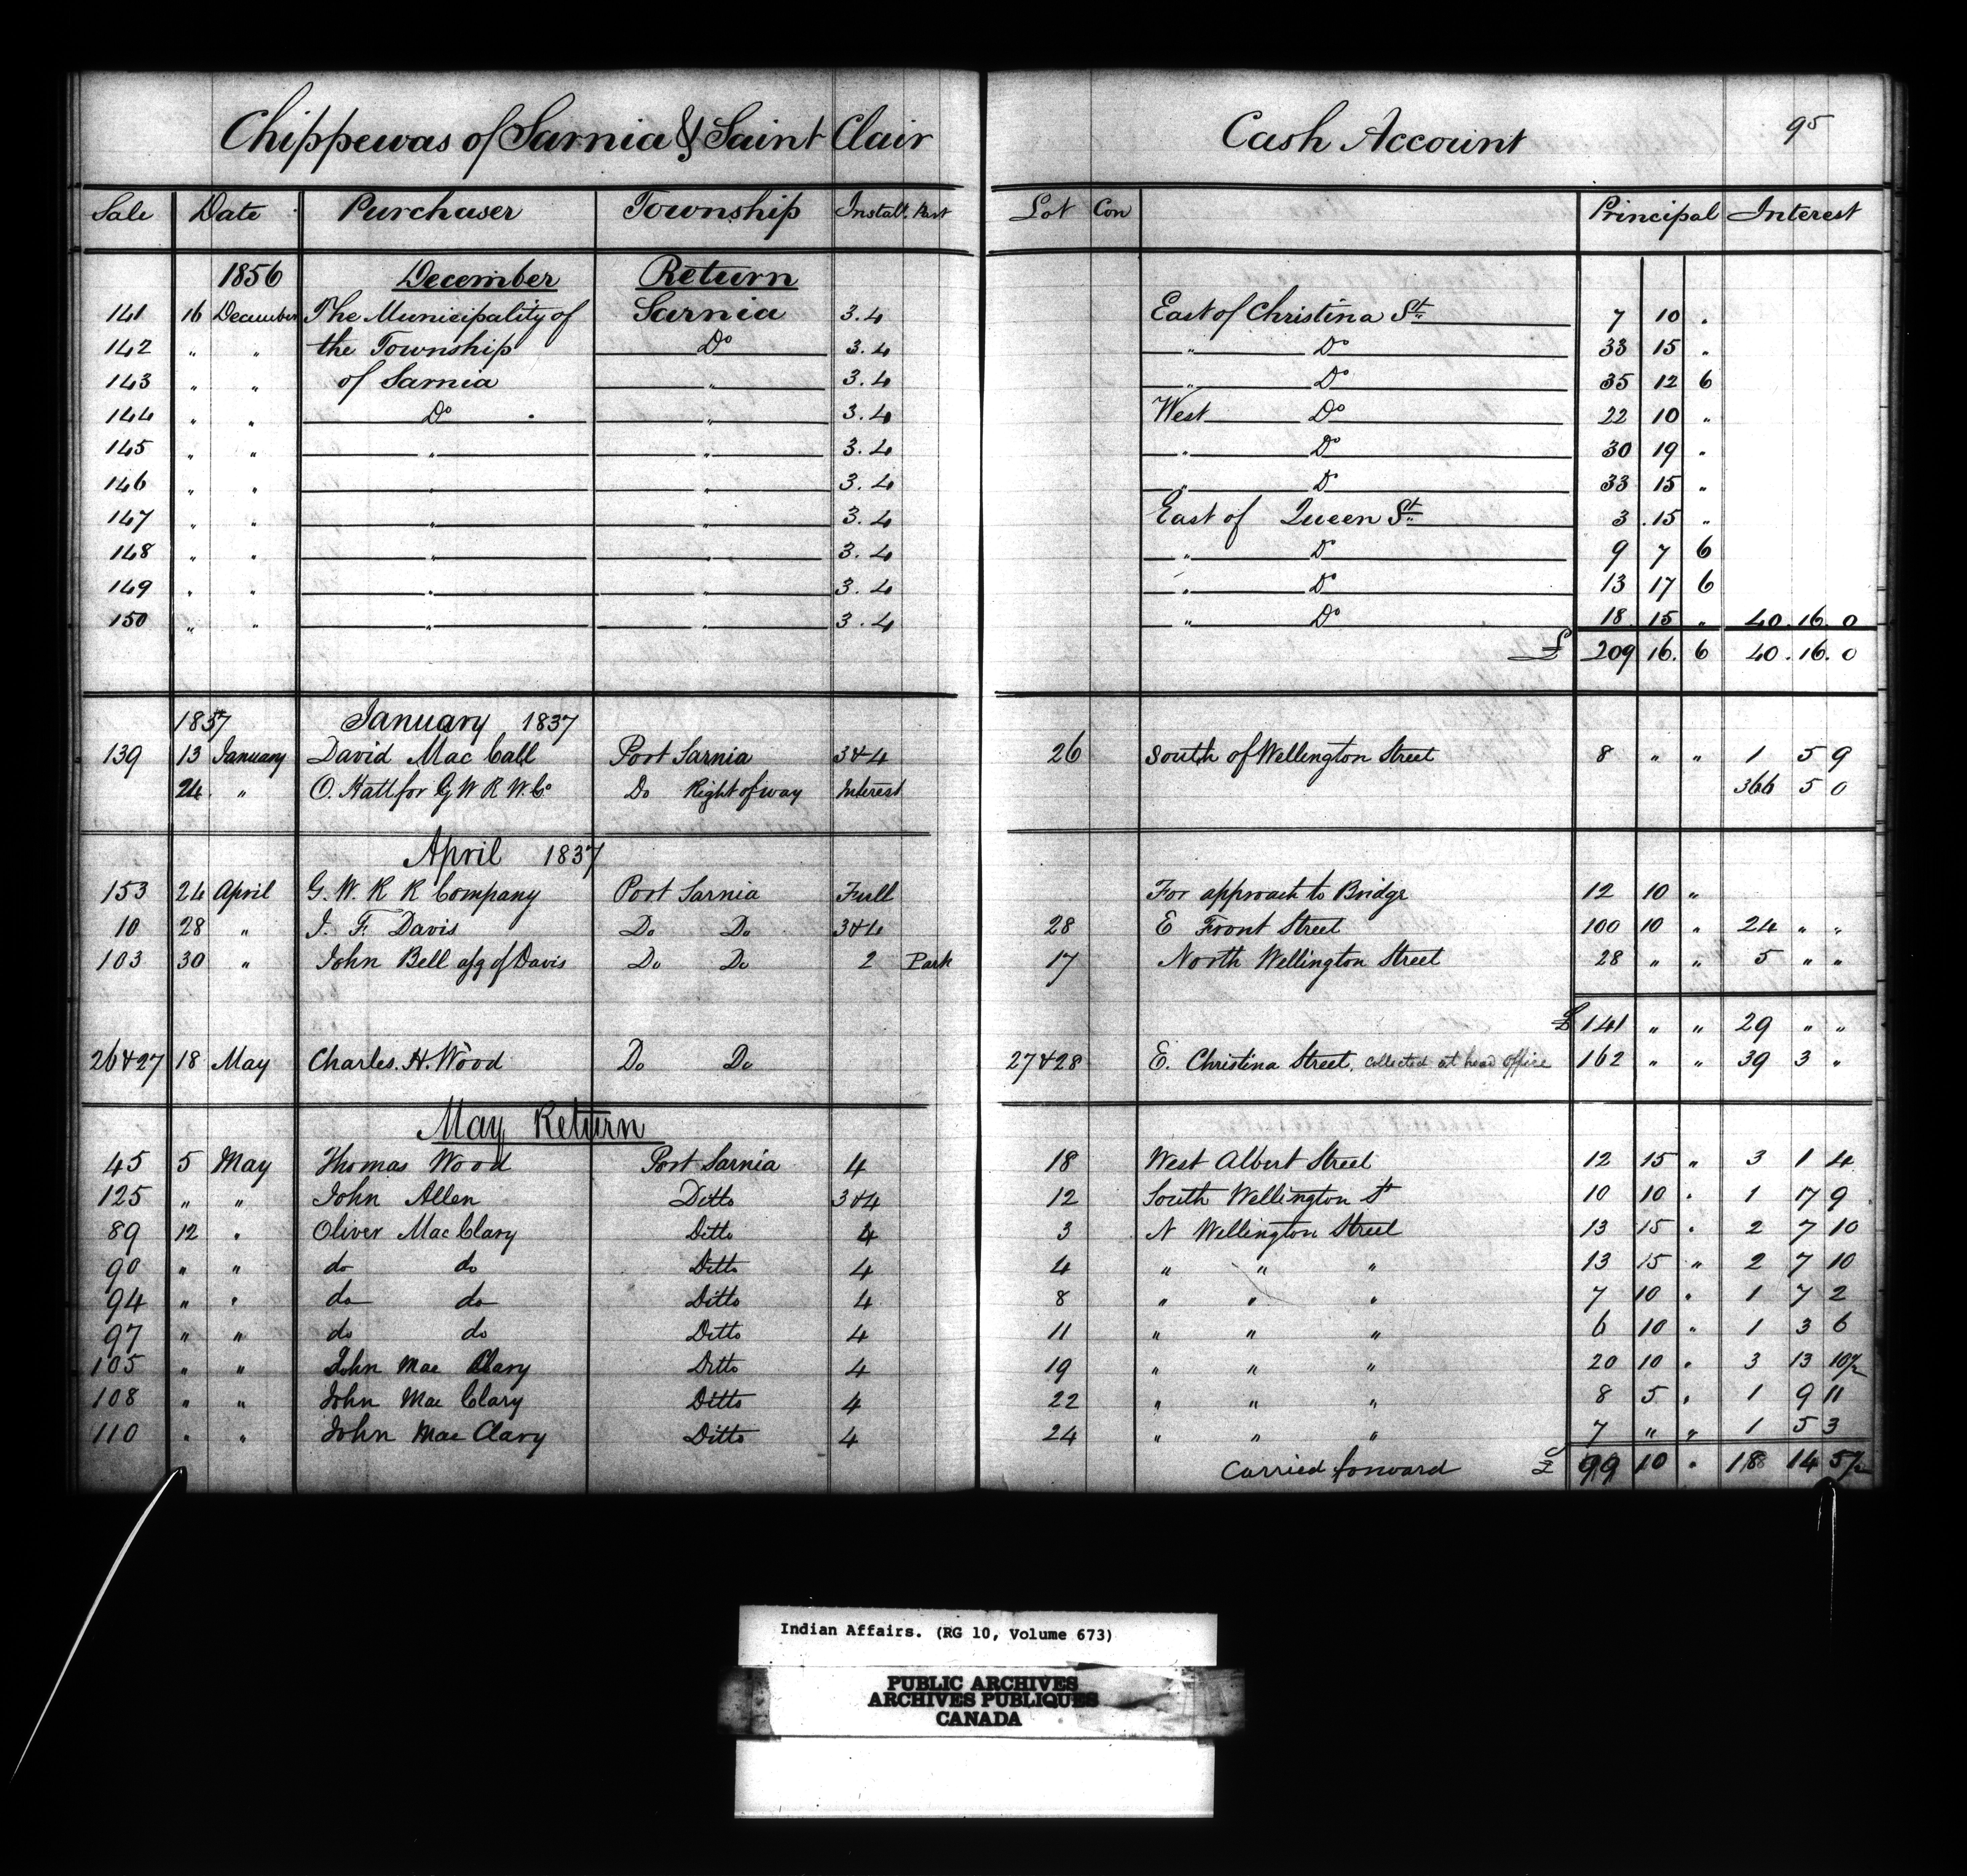 Chippewas of Sarnia & Saint Clair Cash Account 95
Sale Date Purchaser Township Install. Part Lot Con Principal Interest
1856 December Return
141 16 December The Municipality of Sarnia 3.4 East of Christina St 7 10 "
142 " " the Township Do 3.4 " Do 33 15 "
143 " " of Sarnia " 3.4 " Do 35 12 6
144 " " Do " 3.4 West Do 22 10 "
145 " " " " 3.4 " Do 30 19 "
146 " " " " 3.4 " Do 33 15 "
147 " " " " 3.4 East of Queen St 3 15 "
148 " " " " 3.4 " Do 9 7 6
149 " " " " 3.4 " Do 13 17 6
150 " " " " 3.4 " Do 18 15 " 40.16.0
£ 209 16. 6 40.16.0
1857 January 1837
139 13 January David Mac Call Port Sarnia 3&4 26 South of Wellington Street 8 " " 1 5 9
24 " O. Hatt for G W R W. Co Do Right of way Interest 366 5 0
April 1837
153 24 April G. W. R R Company Port Sarnia Full For approach to Bridge 12 10 "
10 28 " I. F. Davis Do Do 3&4 28 E Front Street 100 10 " 24 " "
103 30 " John Bell asg of Davis Do Do 2 Park 17 North Wellington Street 28 " " 5 " "
£ 141 " " 29 " "
26&27 18 May Charles. H. Wood Do Do 27&28 E. Christina Street, collected at head office 162 " " 39 3 "
May Return
45 5 May Thomas Wood Port Sarnia 4 18 West Albert Street 12 15 " 3 1 4
125 " " John Allen Ditto 3&4 12 South Wellington St 10 10 " 1 17 9
89 12 " Oliver Mac Clary Ditto 4 3 N Wellington Street 13 15 " 2 7 10
90 " " do do Ditto 4 4 " " " 13 15 " 2 7 10
94 " " do do Ditto 4 8 " " " 7 10 " 1 7 2
97 " " do do Ditto 4 11 " " " 6 10 " 1 3 6
105 " " John Mac Clary Ditto 4 19 " " " 20 10 " 3 13 10½
108 " " John Mac Clary Ditto 4 22 " " " 8 5 " 1 9 11
110 " " John Mac Clary Ditto 4 24 " " " 7 " " 1 5 3
Carried forward £ 99 10 " 18 14 5½
Indian Affairs. (RG 10, Volume 673)
PUBLIC ARCHIVES
ARCHIVES PUBLIQUES
CANADA